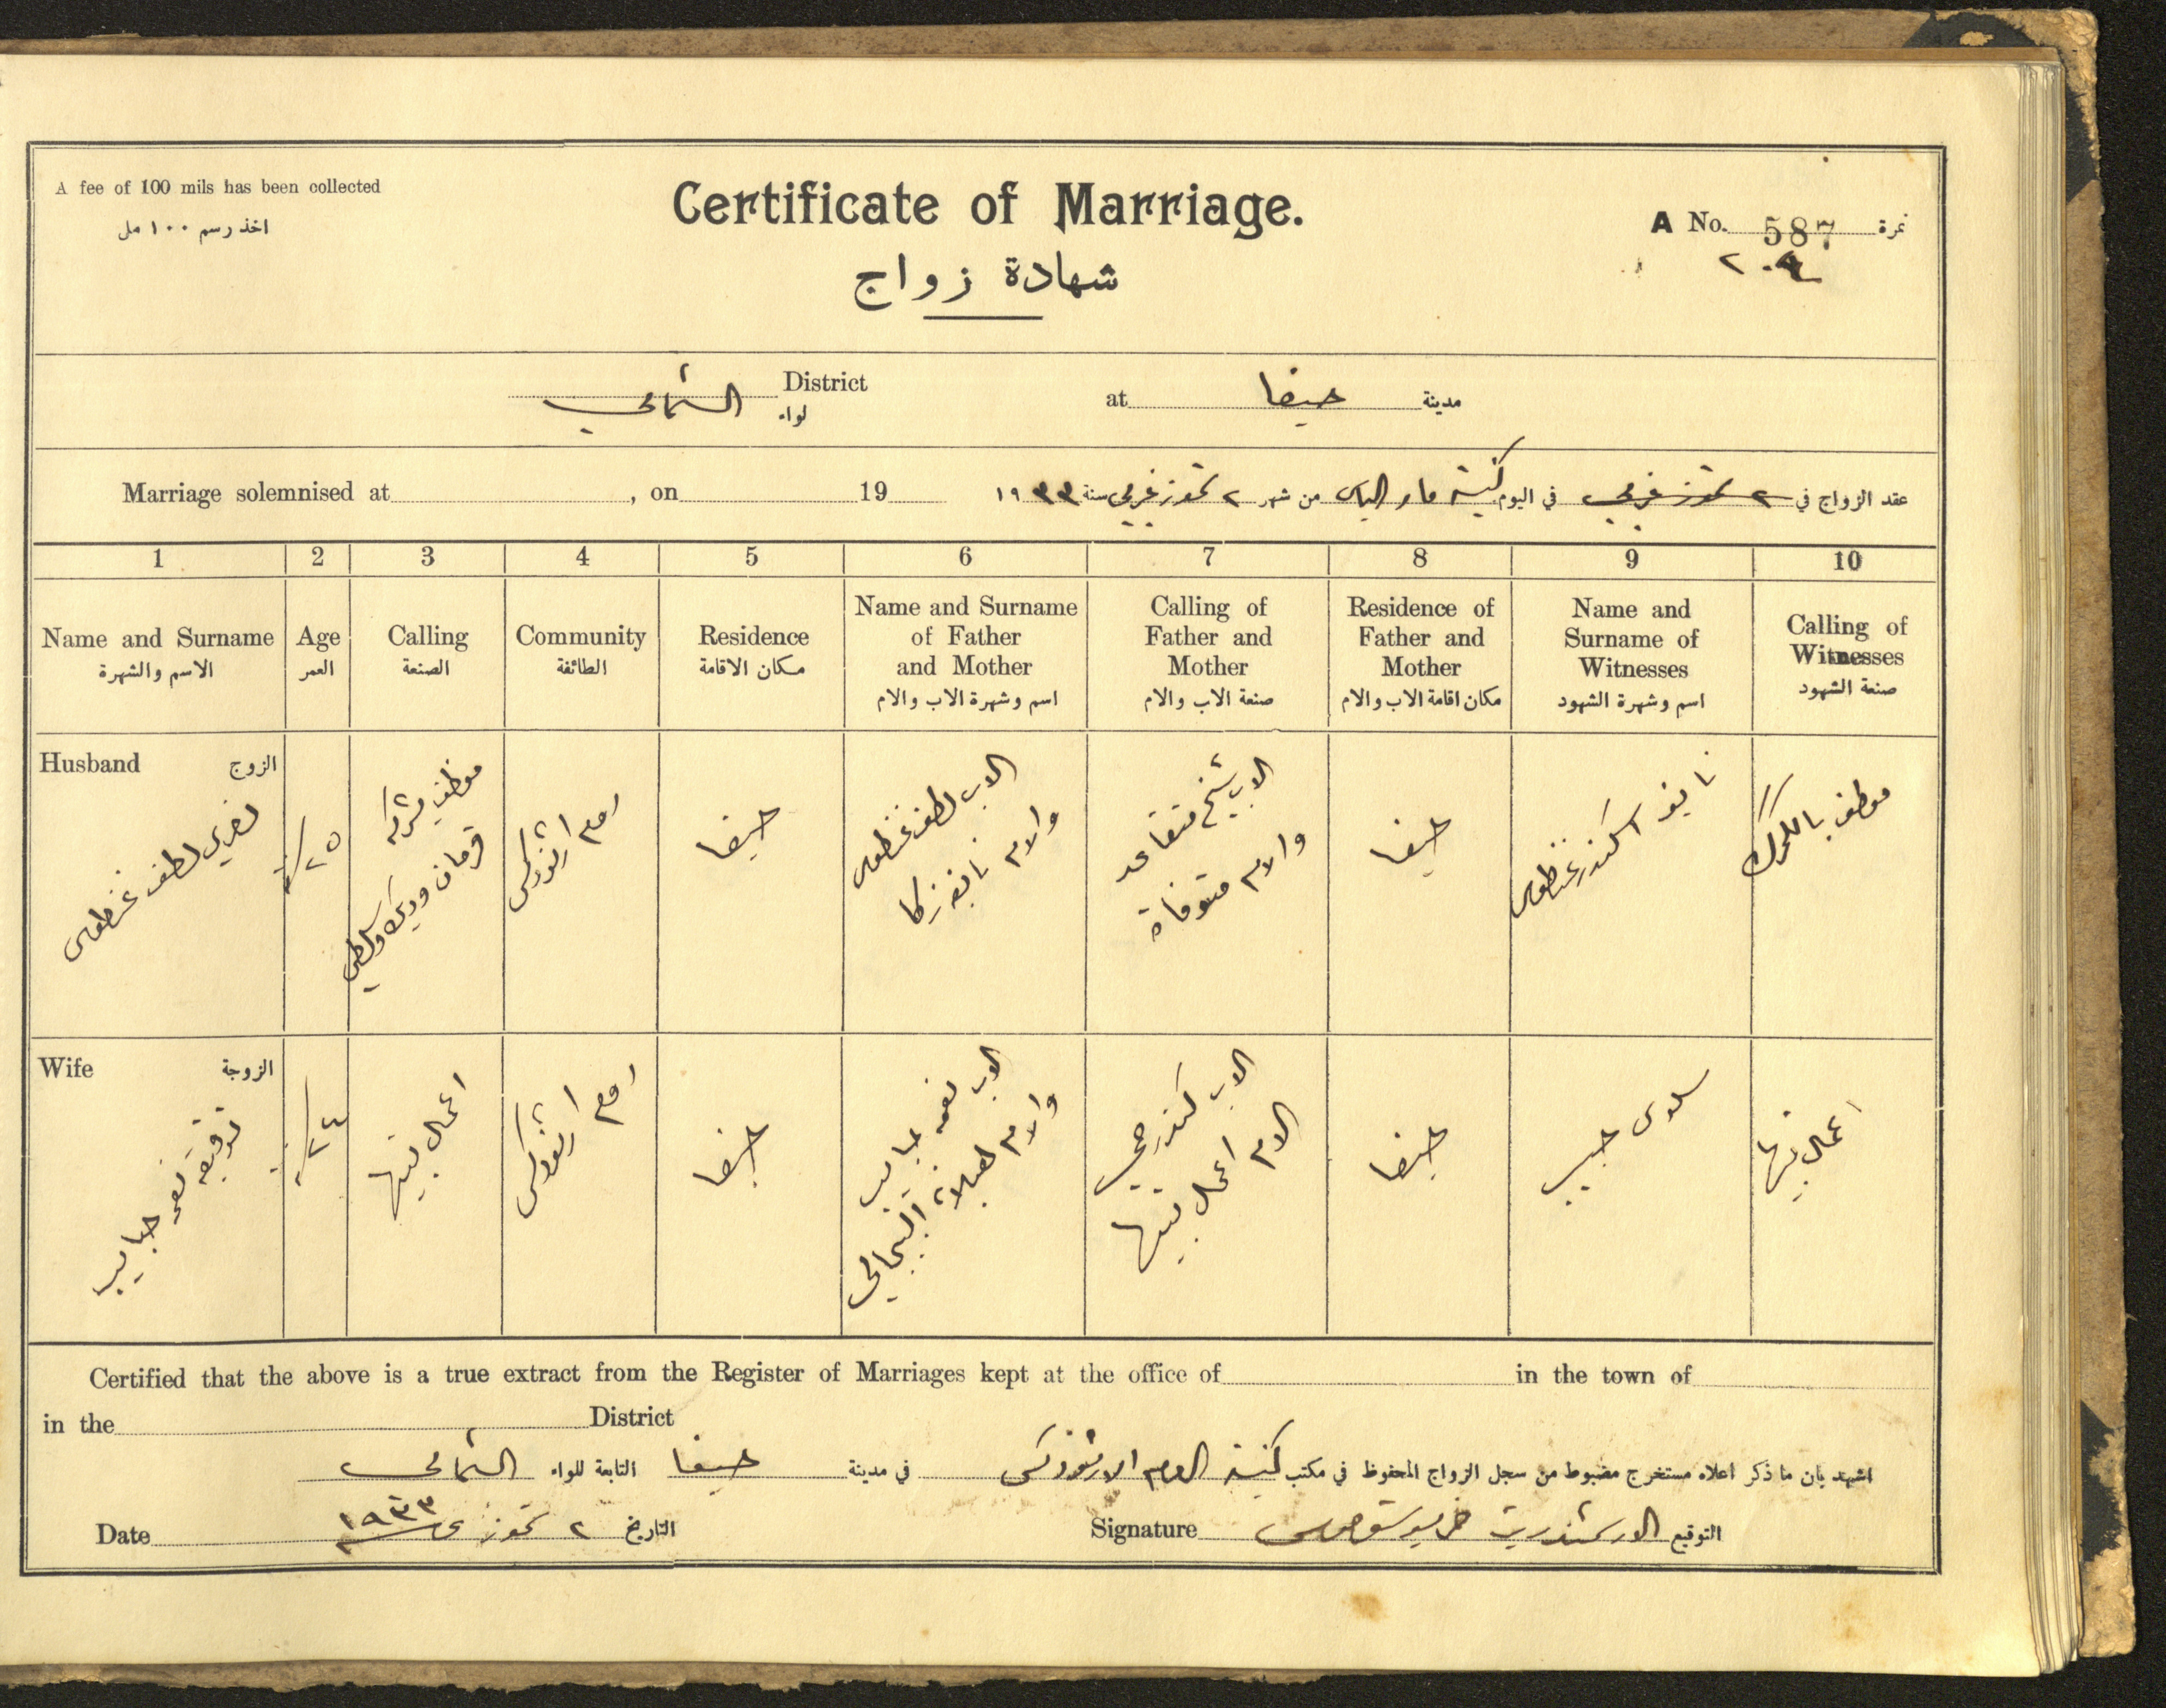 A fee of 100 mils has been collected
اخذ رسم ١٠٠ مل
Certificate of Marriage.
شهادة زواج
A No. 587 نمرة
٢٠٩
District الشمالي لواء
at حيفا مدينة
Marriage solemnised at , on 19
عقد الزواج في ٢ تموز غربي في اليوم كنيسة مار الياس من شهر ٢ تموز غربي سنة ١٩٣٣
1 2 3 4 5 6 7 8 9 10
Name and Surname
الاسم والشهرة
Age
العمر
Calling
الصنعة
Community
الطائفة
Residence
مكان الاقامة
Name and Surname
of Father
and Mother
اسم وشهرة الاب والام
Calling of
Father and
Mother
صنعة الاب والام
Residence of
Father and
Mother
مكان اقامة الاب والام
Name and
Surname of
Witnesses
اسم وشهرة الشهود
Calling of
Witnesses
صنعة الشهود
Husband الزوج
لطف غنطوس
٢٥
موظف بشركة
روم ارثوذكس
حيفا
الاب لطف غنطوس
والام نايفه زكا
الاب شيخ متقاعد
والام متوفاة
حيفا
نايف اسكندر غنطوس
موظف بالكمرك
Wife الزوجة
توفيقه نعمه حبايب
٢٤
اعمال بيتها
روم ارثوذكس
حيفا
الاب نعمه حبايب
والام
الاب كندرجي
الام اعمال بيتها
حيفا
سلوى حبيب
اعمال بيتها
Certified that the above is a true extract from the Register of Marriages kept at the office of in the town of
in the District
اشهد بان ما ذكر اعلاه مستخرج مضبوط من سجل الزواج المحفوظ في مكتب كنيسة الروم الارثوذكس في مدينة حيفا التابعة للواء الشمالي
Date ٢ تموز غ ١٩٣٣ التاريخ
Signature الارشمندريت التوقيع